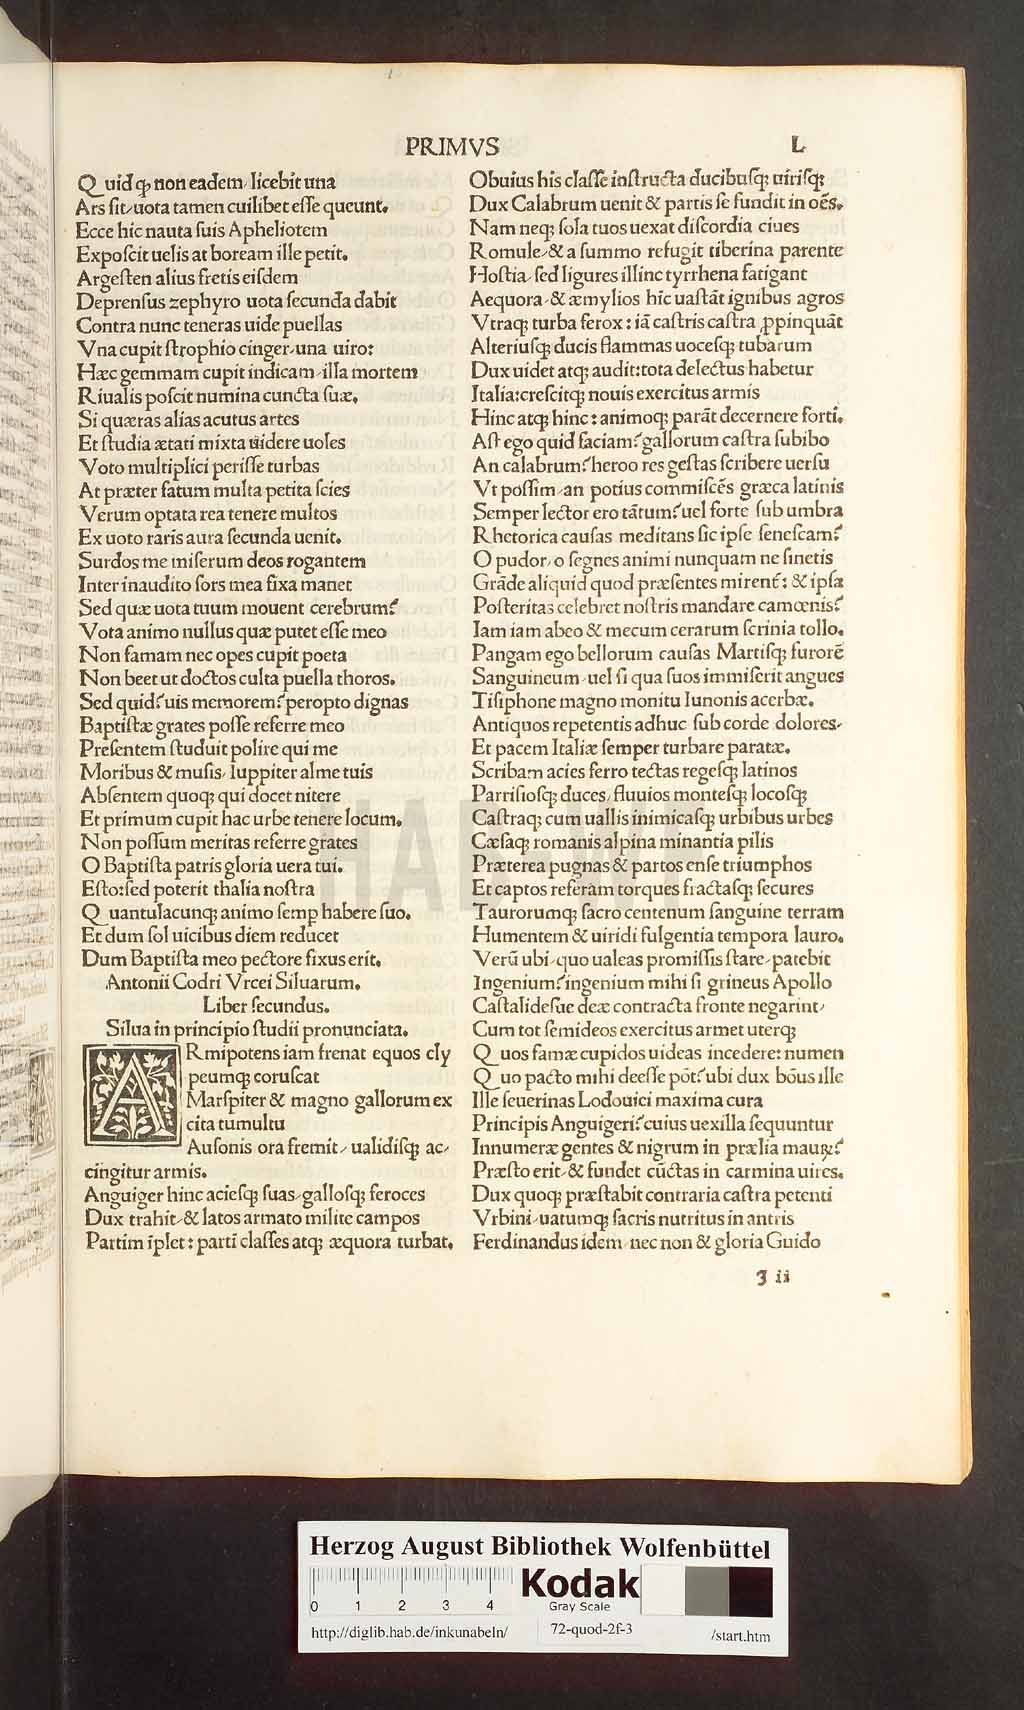 PRIMVS
L
Quid ꝙ non eadem, licebit una
Ars sit, uota tamen cuilibet esse queunt.
Ecce hic nauta suis Apheliotem
Exposcit uelis at boream ille petit.
Argesten alius fretis eisdem
Deprensus zephyro uota secunda dabit
Contra nunc teneras uide puellas
Vna cupit strophio cinger, una uiro:
Hæc gemmam cupit indicam, illa mortem
Riualis poscit numina cuncta suæ.
Si quæras alias acutus artes
Et studia ætati mixta uidere uoles
Voto multiplici perisse turbas
At præter fatum multa petita scies
Verum optata rea tenere multos
Ex uoto raris aura secunda uenit.
Surdos me miserum deos rogantem
Inter inaudito sors mea fixa manet
Sed quæ uota tuum mouent cerebrum?
Vota animo nullus quæ putet esse meo
Non famam nec opes cupit poeta
Non beet ut doctos culta puella thoros.
Sed quid? uis memorem? peropto dignas
Baptistæ grates posse referre meo
Presentem studuit polire qui me
Moribus & musis, Iuppiter alme tuis
Absentem quoq; qui docet nitere
Et primum cupit hac urbe tenere locum.
Non possum meritas referre grates
O Baptista patris gloria uera tui.
Esto: sed poterit thalia nostra
Quantulacunq; animo semꝑ habere suo.
Et dum sol uicibus diem reducet
Dum Baptista meo pectore fixus erit.
Antonii Codri Vrcei Siluarum.
Liber secundus.
Silua in principio studii pronunciata.
ARmipotens iam frenat equos cly
peumq; coruscat
Marspiter & magno gallorum ex
cita tumultu
Ausonis ora fremit, ualidisq; ac-
cingitur armis.
Anguiger hinc aciesq; suas, gallosq; feroces
Dux trahit, & latos armato milite campos
Partim īplet: partī classes atq; æquora turbat.
Obuius his classe instructa ducibusq; uirisq;
Dux Calabrum uenit & partis se fundit in oēs.
Nam neq; sola tuos uexat discordia ciues
Romule, & a summo refugit tiberina parente
Hostia, sed ligures illinc tyrrhena fatigant
Aequora, & æmylios hīc uastāt ignibus agros
Vtraq; turba ferox: iā castris castra ꝓpinquāt
Alteriusq; ducis flammas uocesq; tubarum
Dux uidet atq; audit: tota delectus habetur
Italia: crescitq; nouis exercitus armis
Hinc atq; hinc: animoq; parāt decernere forti.
Ast ego quid faciam? gallorum castra subibo
An calabrum? heroo res gestas scribere uersu
Vt possim, an potius commiscēs græca latinis
Semper lector ero tātum? uel forte sub umbra
Rhetorica causas meditans sic ipse senescam?
O pudor, o segnes animi nunquam ne sinetis
Grāde aliquid quod præsentes mirenť: & ipsa
Posteritas celebret nostris mandare camœnis?
Iam iam abeo & mecum cerarum scrinia tollo.
Pangam ego bellorum causas Martisq; furorē
Sanguineum, uel si qua suos immiserit angues
Tisiphone magno monitu Iunonis acerbæ.
Antiquos repetentis adhuc sub corde dolores,
Et pacem Italiæ semper turbare paratæ.
Scribam acies ferro tectas regesq; latinos
Parrisiosq; duces, fluuios montesq; locosq;
Castraq; cum uallis inimicasq; urbibus urbes
Cæsaq; romanis alpina minantia pilis
Præterea pugnas & partos ense triumphos
Et captos referam torques fractasq; secures
Taurorumq; sacro centenum sanguine terram
Humentem & uiridi fulgentia tempora lauro.
Verū ubi, quo ualeas promissis stare, patebit
Ingenium? ingenium mihi si grineus Apollo
Castalidesue deæ contracta fronte negarint,
Cum tot semideos exercitus armet uterq;
Quos famæ cupidos uideas incedere: numen
Quo pacto mihi deesse pōt? ubi dux bōus ille
Ille seuerinas Lodouici maxima cura
Principis Anguigeri? cuius uexilla sequuntur
Innumeræ gentes & nigrum in prælia mauꝝ?
Præsto erit, & fundet cūctas in carmina uires.
Dux quoq; præstabit contraria castra petenti
Vrbini, uatumq; sacris nutritus in antris
Ferdinandus idem, nec non & gloria Guido
J ii
HAB WF
Herzog August Bibliothek Wolfenbüttel
0 1 2 3 4
Kodak
Gray Scale
http://diglib.hab.de/inkunabeln/
72-quod-2f-3
/start.htm